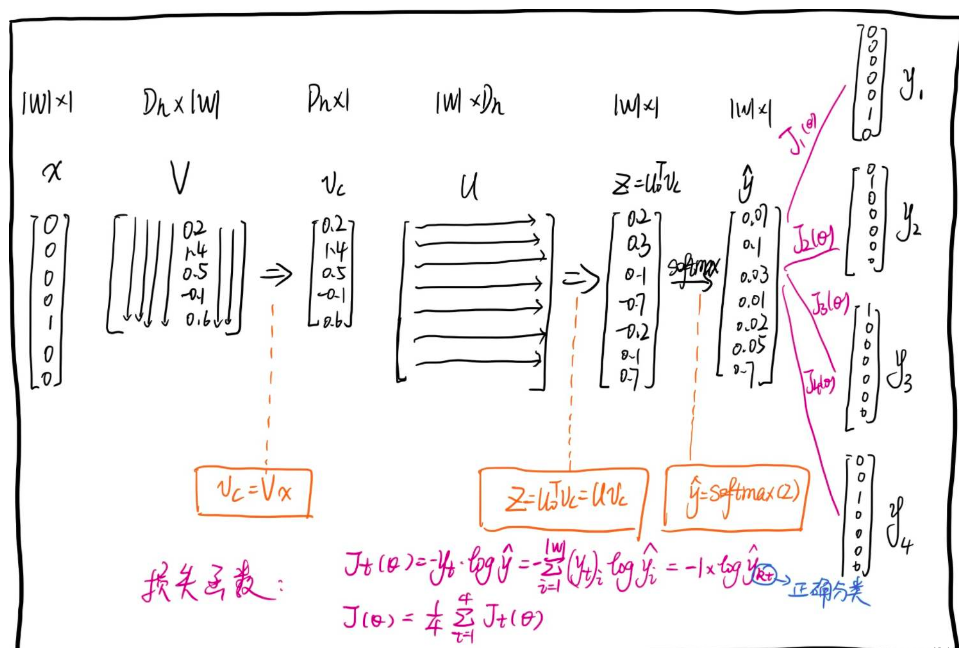 |W|×1 Dn×|W| Dn×1 |W|×Dn |W|×1 |W|×1
x V v_c U Z=u_o^T v_c ŷ
0 0 0 0 1 0 0
0.2 1.4 0.5 -0.1 0.6
⇒
0.2 1.4 0.5 -0.1 0.6
⇒
0.2 0.3 0.1 -0.7 -0.2 0.1 0.7
softmax
0.07 0.1 0.03 0.01 0.02 0.05 0.7
J_1(θ)
0 0 0 0 0 1 0
y_1
J_2(θ)
0 1 0 0 0 0 0
y_2
J_3(θ)
1 0 0 0 0 0 0
y_3
J_4(θ)
0 0 1 0 0 0 0
y_4
v_c=Vx
Z=u_o^T v_c=Uv_c
ŷ=softmax(Z)
损失函数:
J_t(θ)=-y_t·log ŷ=-∑_{i=1}^{|W|}(y_t)_i log ŷ_i=-1×log ŷ_{kt}→正确分类
J(θ)=1/4 ∑_{t=1}^{4} J_t(θ)